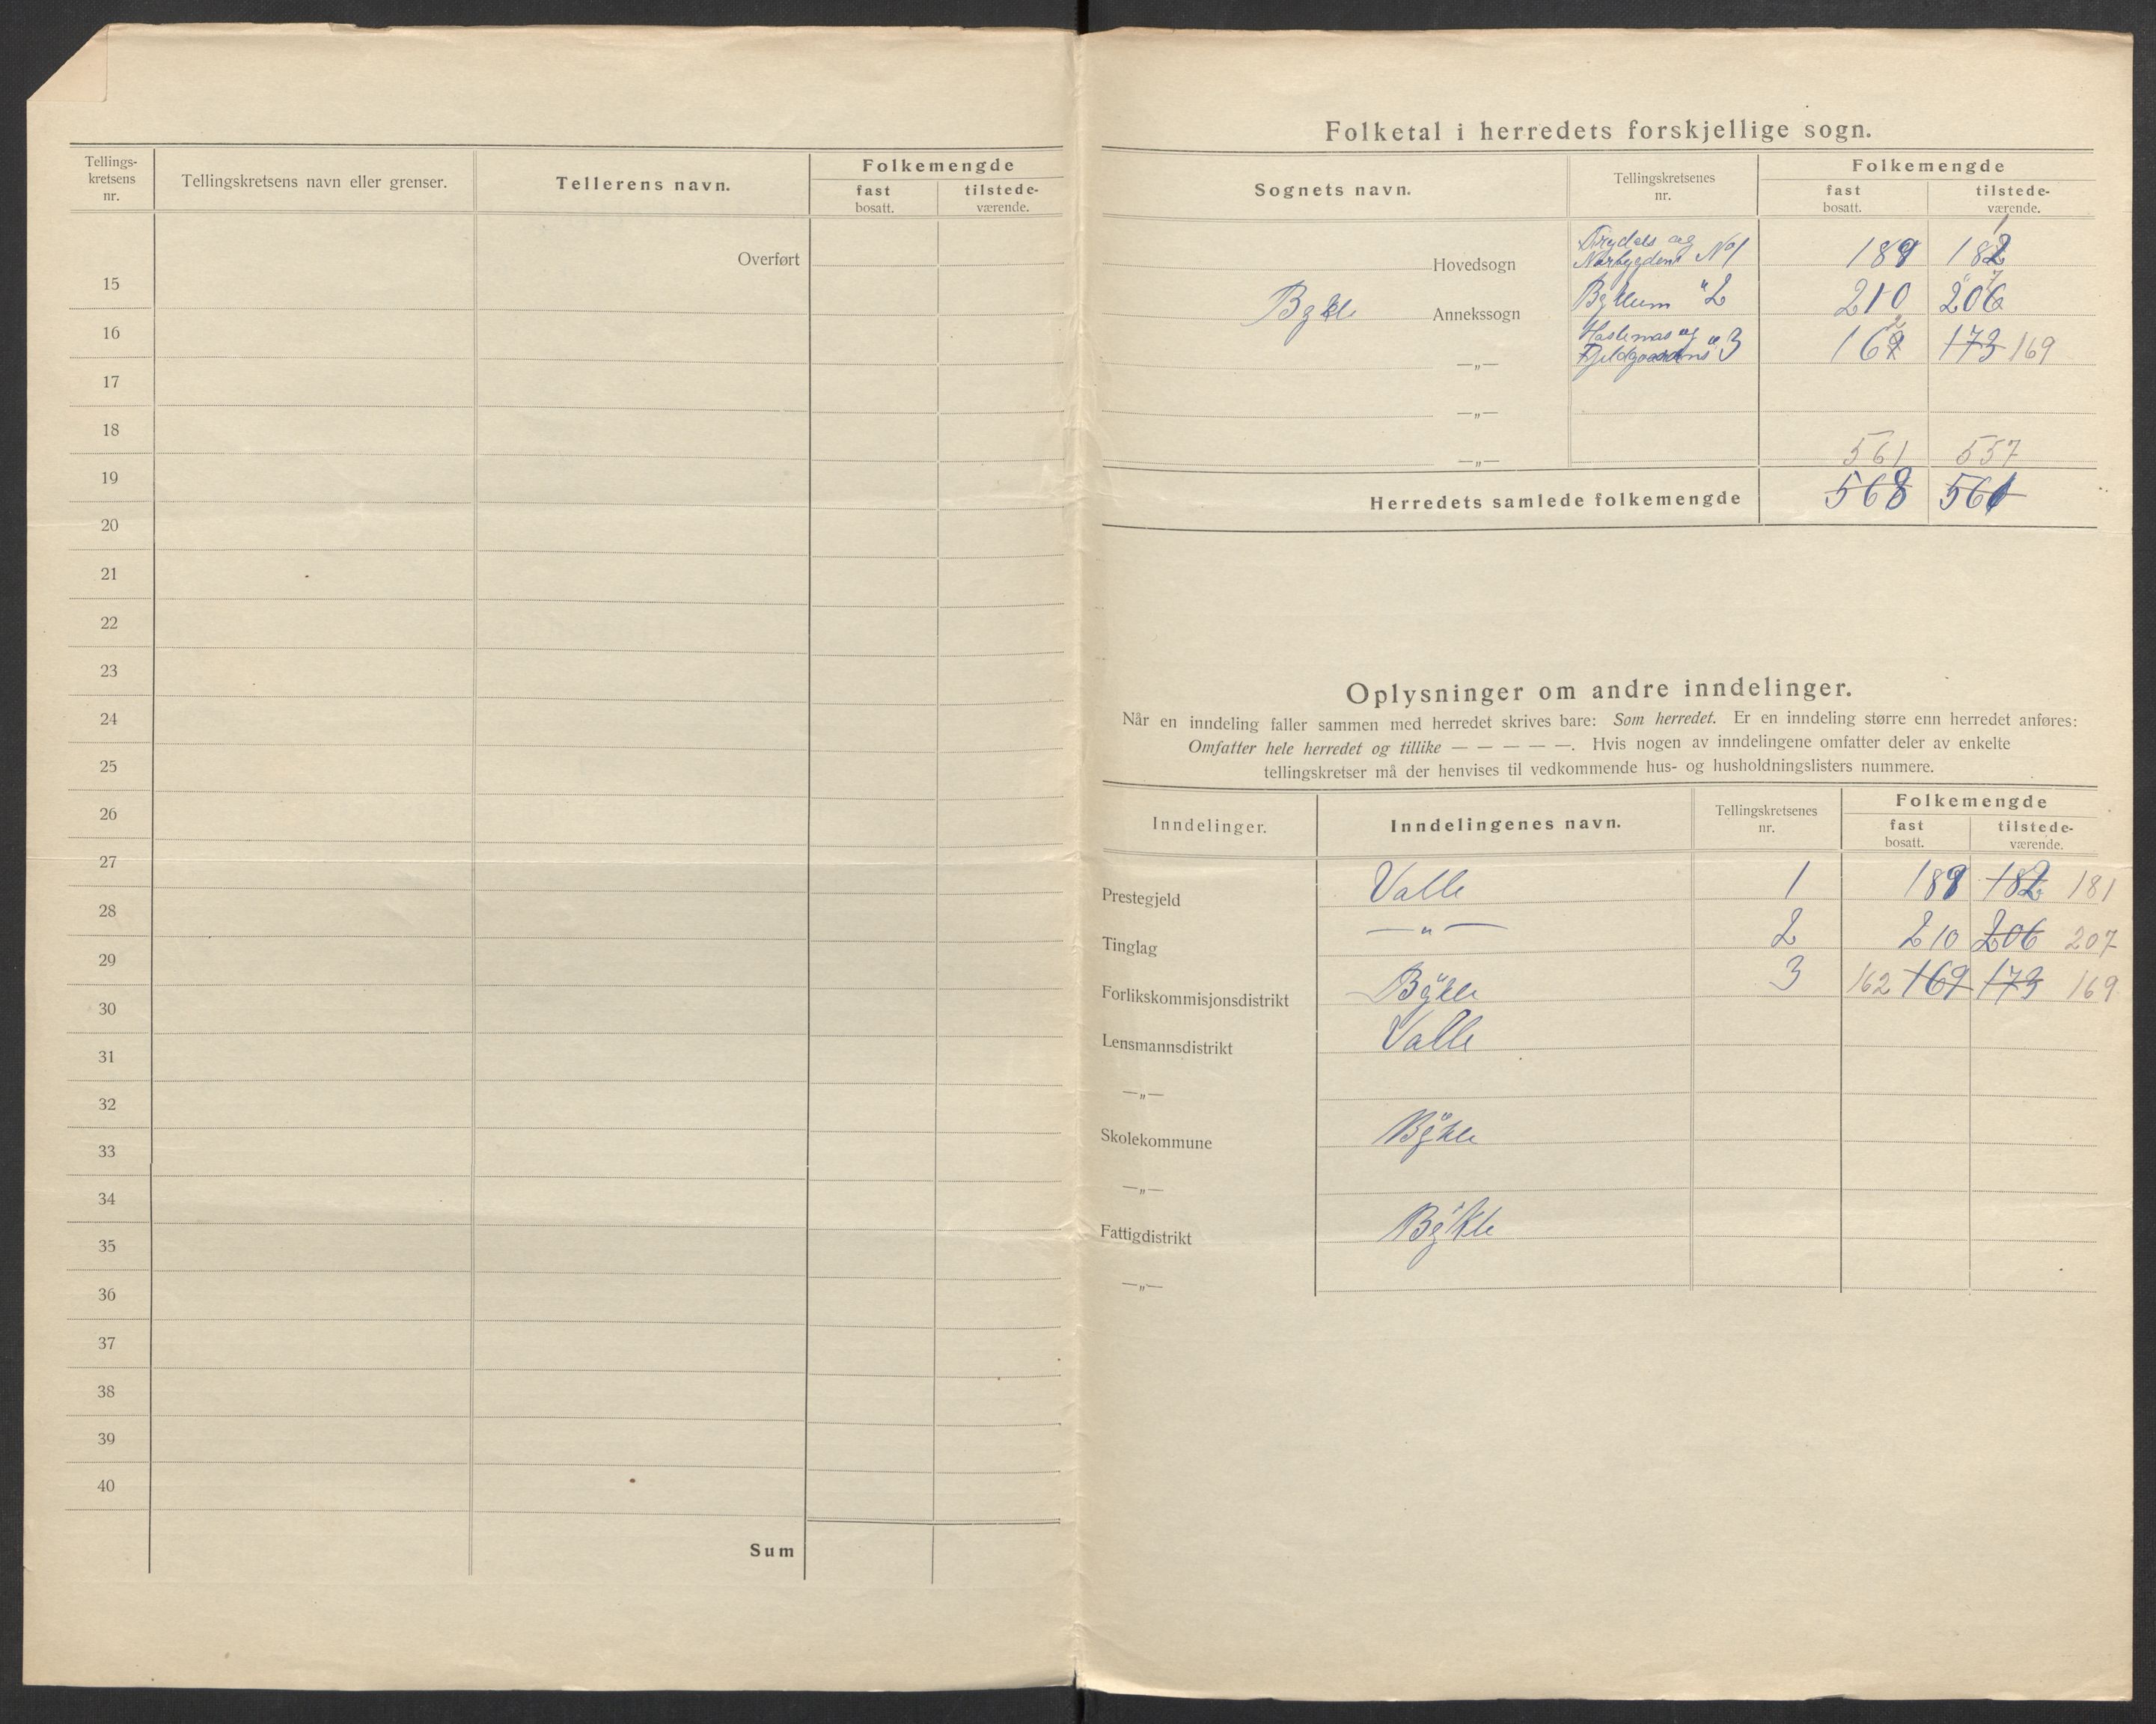 Tellings-
kretsens
nr.
Tellingskretsens navn eller grenser.
Tellerens navn.
Folkemengde
fast
bosatt.
tilstede-
værende.
Overført
15
16
17
18
19
20
21
22
23
24
25
26
27
28
29
30
31
32
33
34
35
36
37
38
39
40
Sum
Folketal i herredets forskjellige sogn.
Sognets navn.
Tellingskretsenes
nr.
Folkemengde
fast
bosatt.
tilstede-
værende.
Hovedsogn No 1 189 182 1
Bykle Annekssogn Byklum " 2 210 206 7
—„— Fjeldgaardens " 3 169 2 173 169
—„—
—„— 561 557
Herredets samlede folkemengde 568 561
Oplysninger om andre inndelinger.
Når en inndeling faller sammen med herredet skrives bare: Som herredet. Er en inndeling større enn herredet anføres:
Omfatter hele herredet og tillike — — — — —. Hvis nogen av inndelingene omfatter deler av enkelte
tellingskretser må der henvises til vedkommende hus- og husholdningslisters nummere.
Inndelinger.
Inndelingenes navn.
Tellingskretsenes
nr.
Folkemengde
fast
bosatt.
tilstede-
værende.
Prestegjeld Valle 1 189 182 181
Tinglag —"— 2 210 206 207
Forlikskommisjonsdistrikt Bykle 3 162 169 173 169
Lensmannsdistrikt Valle
—„—
Skolekommune Bykle
—„—
Fattigdistrikt Bykle
—„—